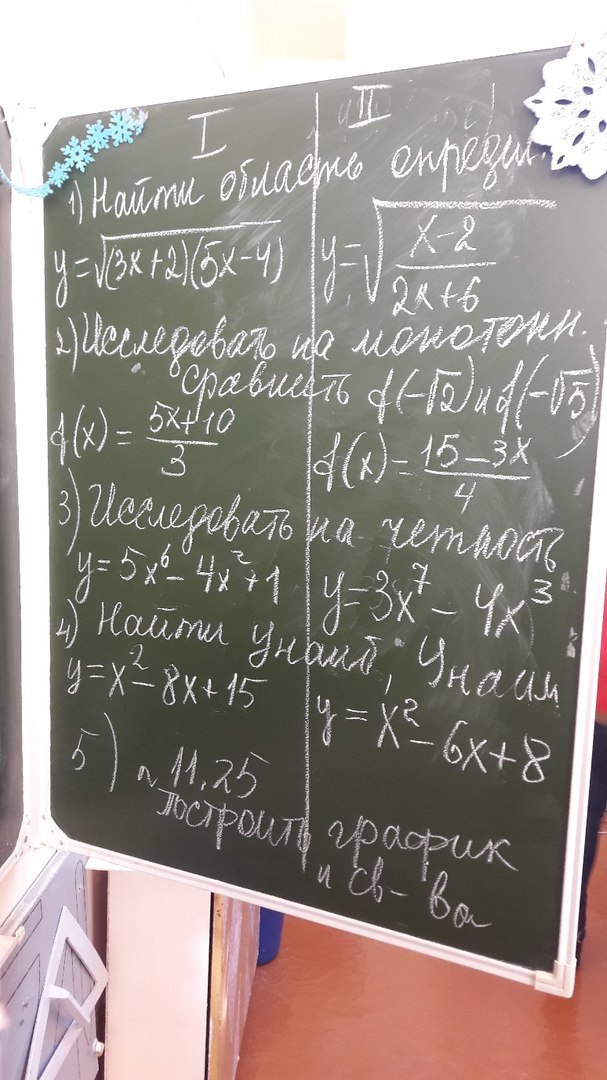 I II
1) Найти область определ.
y=√(3x+2)(5x-4) y=√x-2/2x+6
2) Исследовать на монотонн.
сравнить f(-√2) и f(-√5)
f(x)=5x+10/3 f(x)=15-3x/4
3) Исследовать на четность
y=5x⁶-4x²+1 y=3x⁷-4x³
4) Найти унаиб, унаим
y=x²-8x+15 y=x²-6x+8
5) ~11.25
Построить график
и св-ва